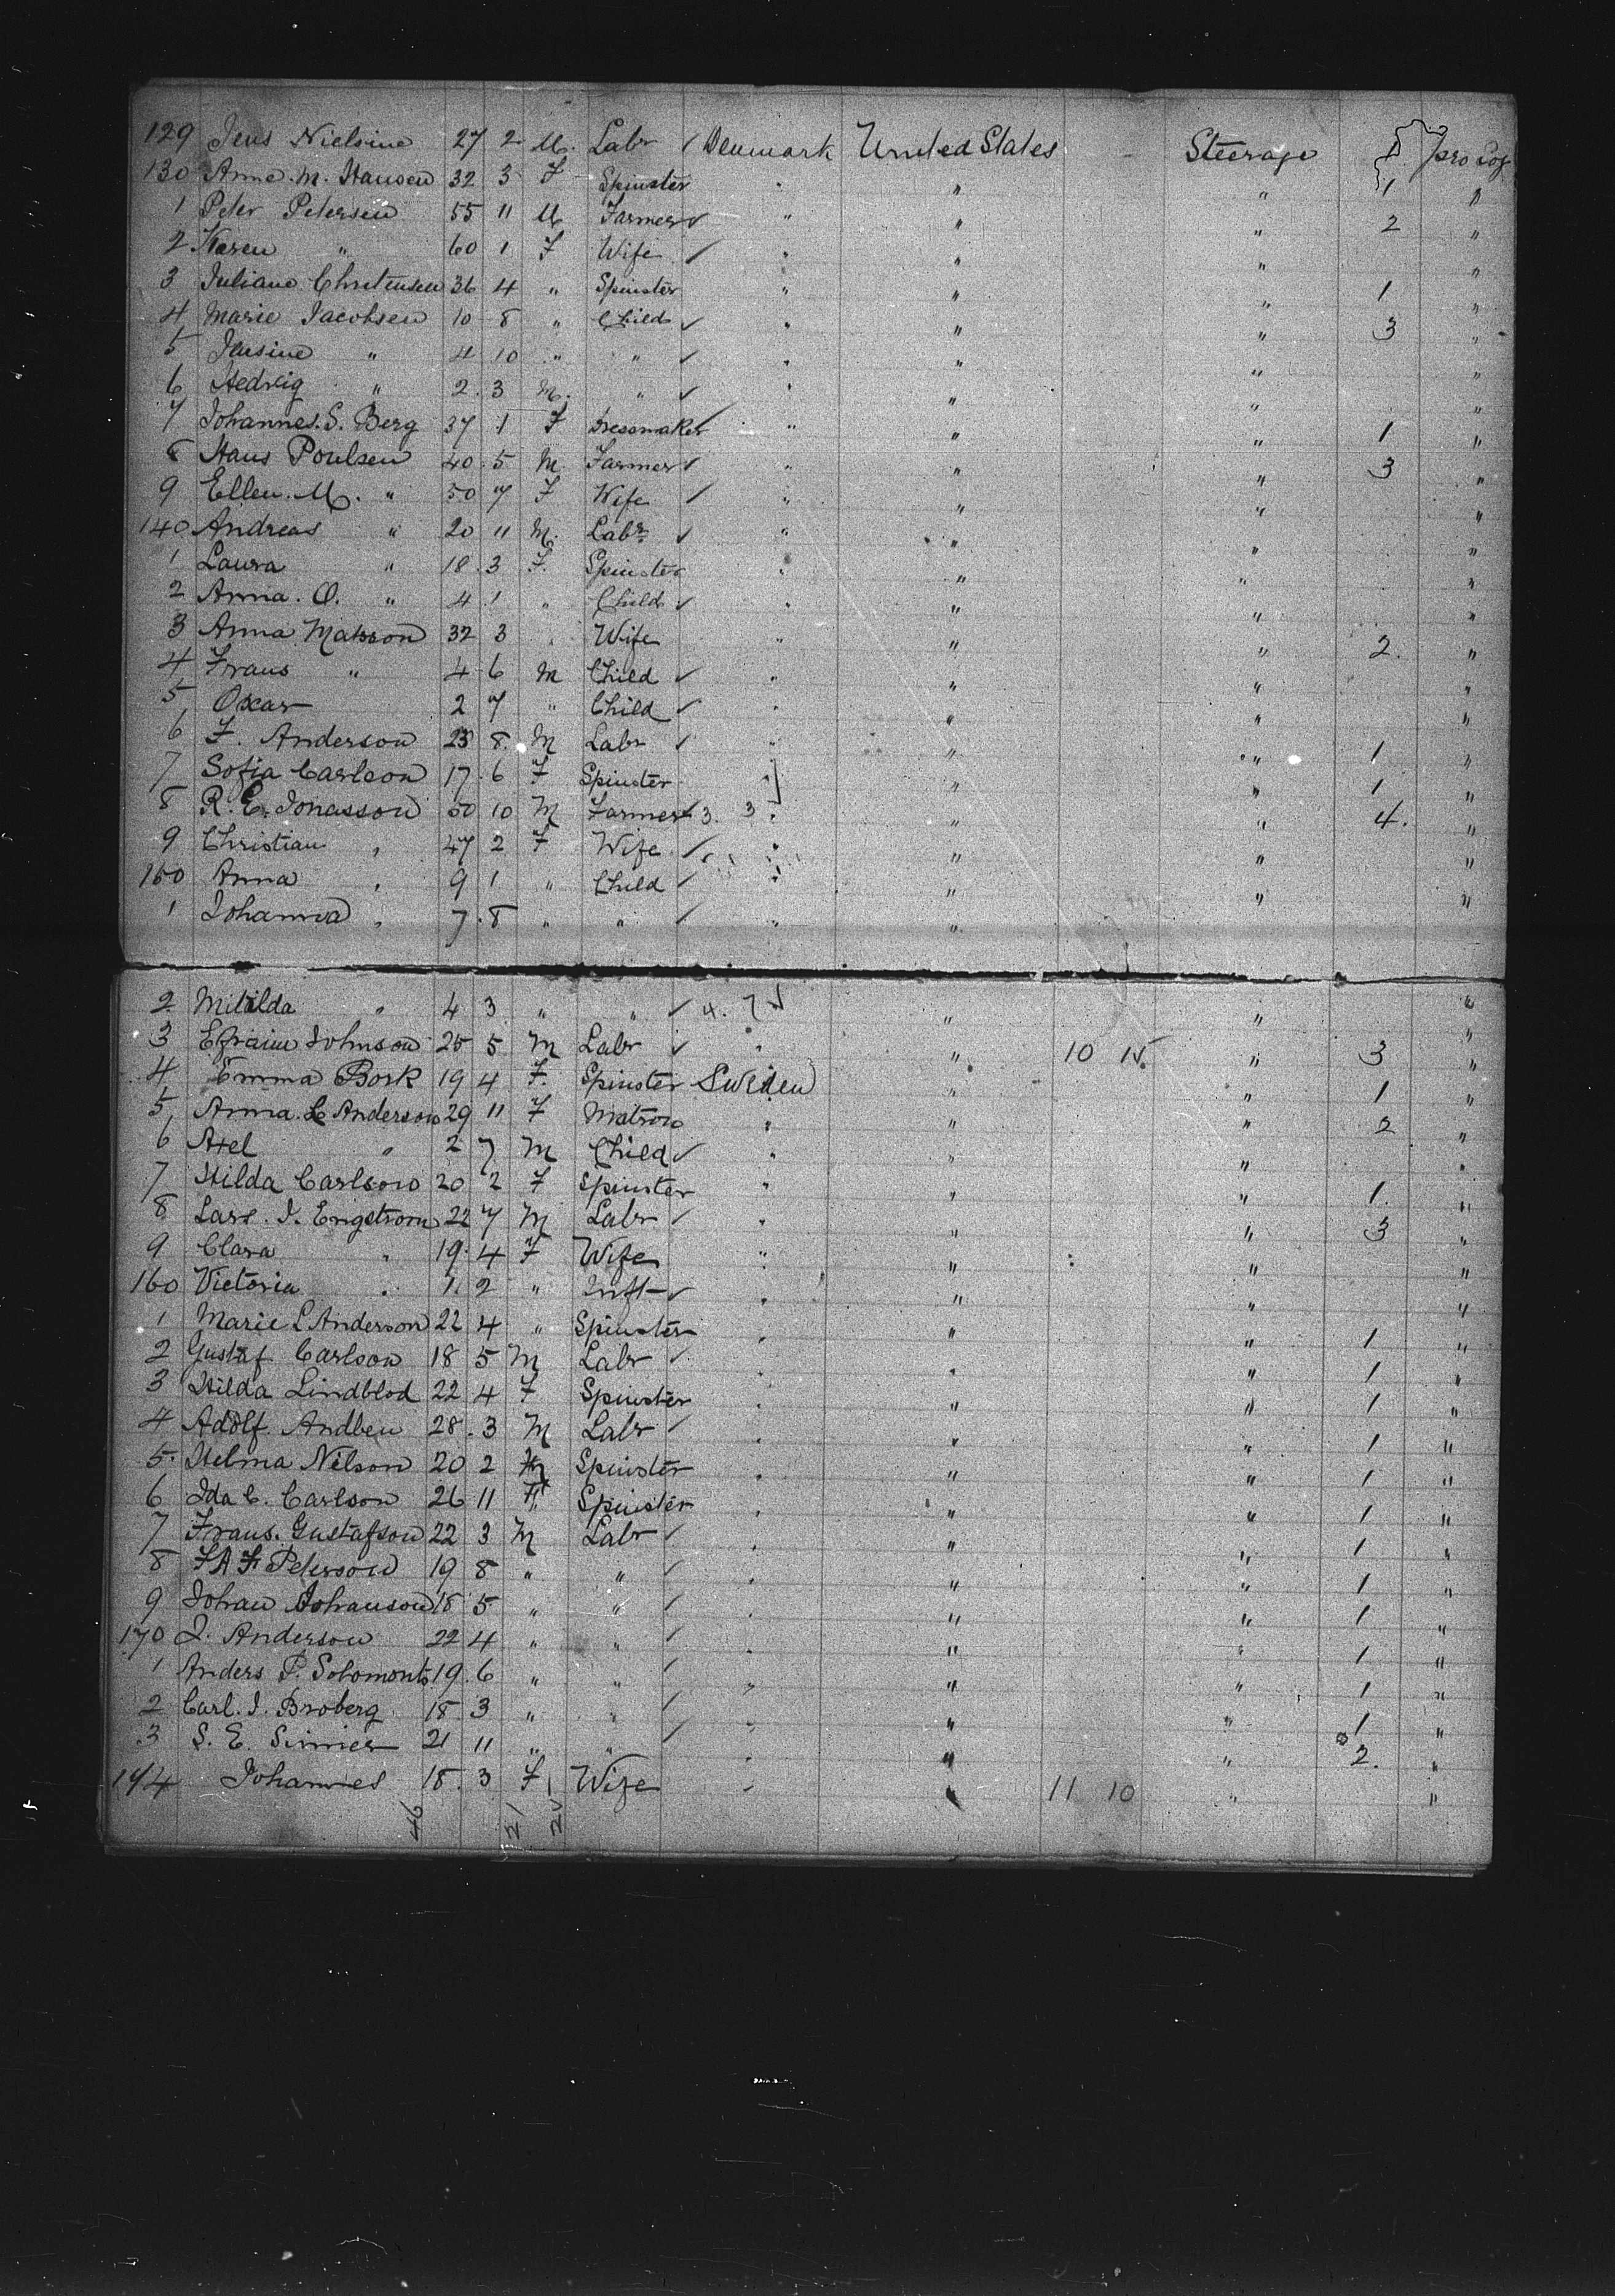 129 Jens Nielsine 27 2 M. Labr ✓ Denmark United States Steerage 1 pro Log
130 Anne. M. Hansen 32 3 F Spinster " " " 1 "
1 Peter Petersen 55 11 M Farmer ✓ " " " 2 "
2 Karen " 60 1 F Wife ✓ " " " "
3 Juliane Christensen 36 4 " Spinster " " " 1 "
4 Marie Jacobsen 10 8 " Child ✓ " " " 3 "
5 Jensine " 4 10 " " ✓ " " " "
6 Hedvig " 2. 3 M. " ✓ " " " "
7 Johannes. S. Berg 37 1 F Dressmaker ✓ " " " 1 "
8 Hans Poulsen 40. 5 M Farmer ✓ " " " 3 "
9 Ellen. M. " 50 7 F Wife ✓ " " " "
140 Andreas " 20 11 M. Labr ✓ " " " "
1 Laura " 18. 3 F. Spinster " " " "
2 Anna. O. " 4 1 " Child ✓ " " " "
3 Anna Matsson 32 3 " Wife " " " 2. "
4 Frans " 4 6 M Child ✓ " " " "
5 Oscar 2 7 " Child ✓ " " " "
6 F. Anderson 23 8. M Labr ✓ " " " 1 "
7 Sofia Carlson 17. 6 F Spinster " " " 1 "
8 R. E. Jonasson 50 10 M Farmer ✓ 3. 3 " " " 4. "
9 Christian " 47 2 F Wife ✓ " " " "
150 Anna " 9 1 " Child ✓ " " " "
1 Johanna " 7. 8 " " ✓ " "
2 Mitilda " 4 3 " " ✓ 4. 7 ✓ " " "
3 Efraim Johnson 25 5 M Labr ✓ " " 10 15. " 3 "
4 Emma Bork 19 4 F. Spinster Sweden " " 1 "
5 Anna. L Anderson 29 11 F Matron " " " 2 "
6 Axel " 2 7 M Child ✓ " " " "
7 Hilda Carlson 20 2 F Spinster " " " 1. "
8 Lars. J. Engstrom 22 7 M Labr ✓ " " " 3 "
9 Clara " 19. 4 F Wife " " " "
160 Victoria " 1. 2 " Inft ✓ " " " "
1 Marie L Anderson 22 4 " Spinster " " " 1 "
2 Gustaf Carlson 18 5 M Labr ✓ " " " 1 "
3 Hilda Lindblod 22 4 F Spinster " " " 1 "
4 Adolf. Andben 28. 3 M Labr ✓ " " " 1 "
5. Helma Nelson 20 2 Spinster " " " 1 "
6 Ida C. Carlson 26 11 F Spinster " " " 1 "
7 Frans. Gustafson 22 3 M Labr ✓ " " " 1 "
8 F A F Peterson 19 8 " " ✓ " " " 1 "
9 Johan Johanson 18 5 " " ✓ " " " 1 "
170 J. Anderson 22 4 " " ✓ " " " 1 "
1 Anders P. Solomonts 19. 6 " " ✓ " " " 1 "
2 Carl. J. Broberg 18 3 " " ✓ " " " 1 "
3 S. E. Simmer 21 11 " " ✓ " " " 2. "
174 Johannes 18. 3 F Wife " " 11 10 " "
46 21 25